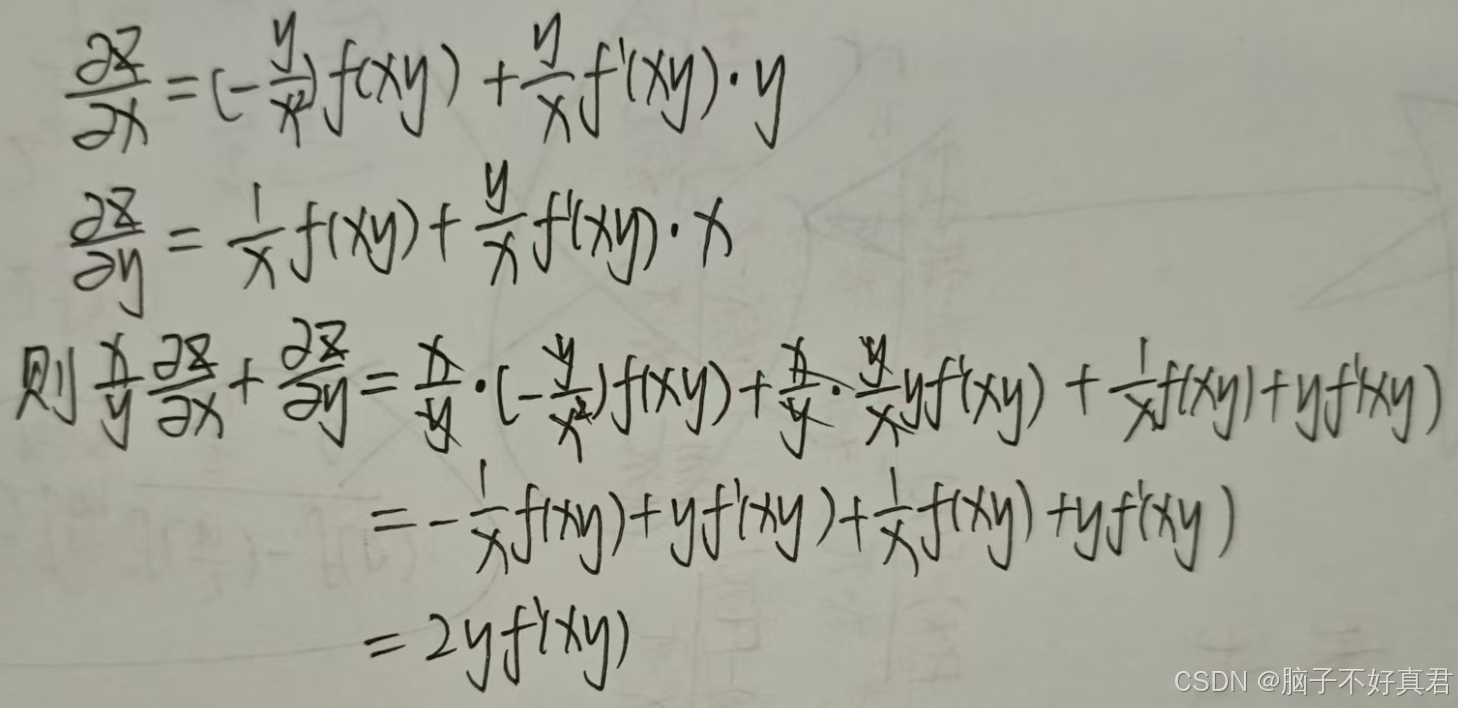 ∂z/∂x = (-y/x²)f(xy) + y/x f'(xy)·y
∂z/∂y = 1/x f(xy) + y/x f'(xy)·x
则 x/y ∂z/∂x + ∂z/∂y = x/y·(-y/x²)f(xy) + x/y·y/x yf'(xy) + 1/x f(xy) + yf'(xy)
= -1/x f(xy) + yf'(xy) + 1/x f(xy) + yf'(xy)
= 2yf'(xy)
CSDN @脑子不好真君